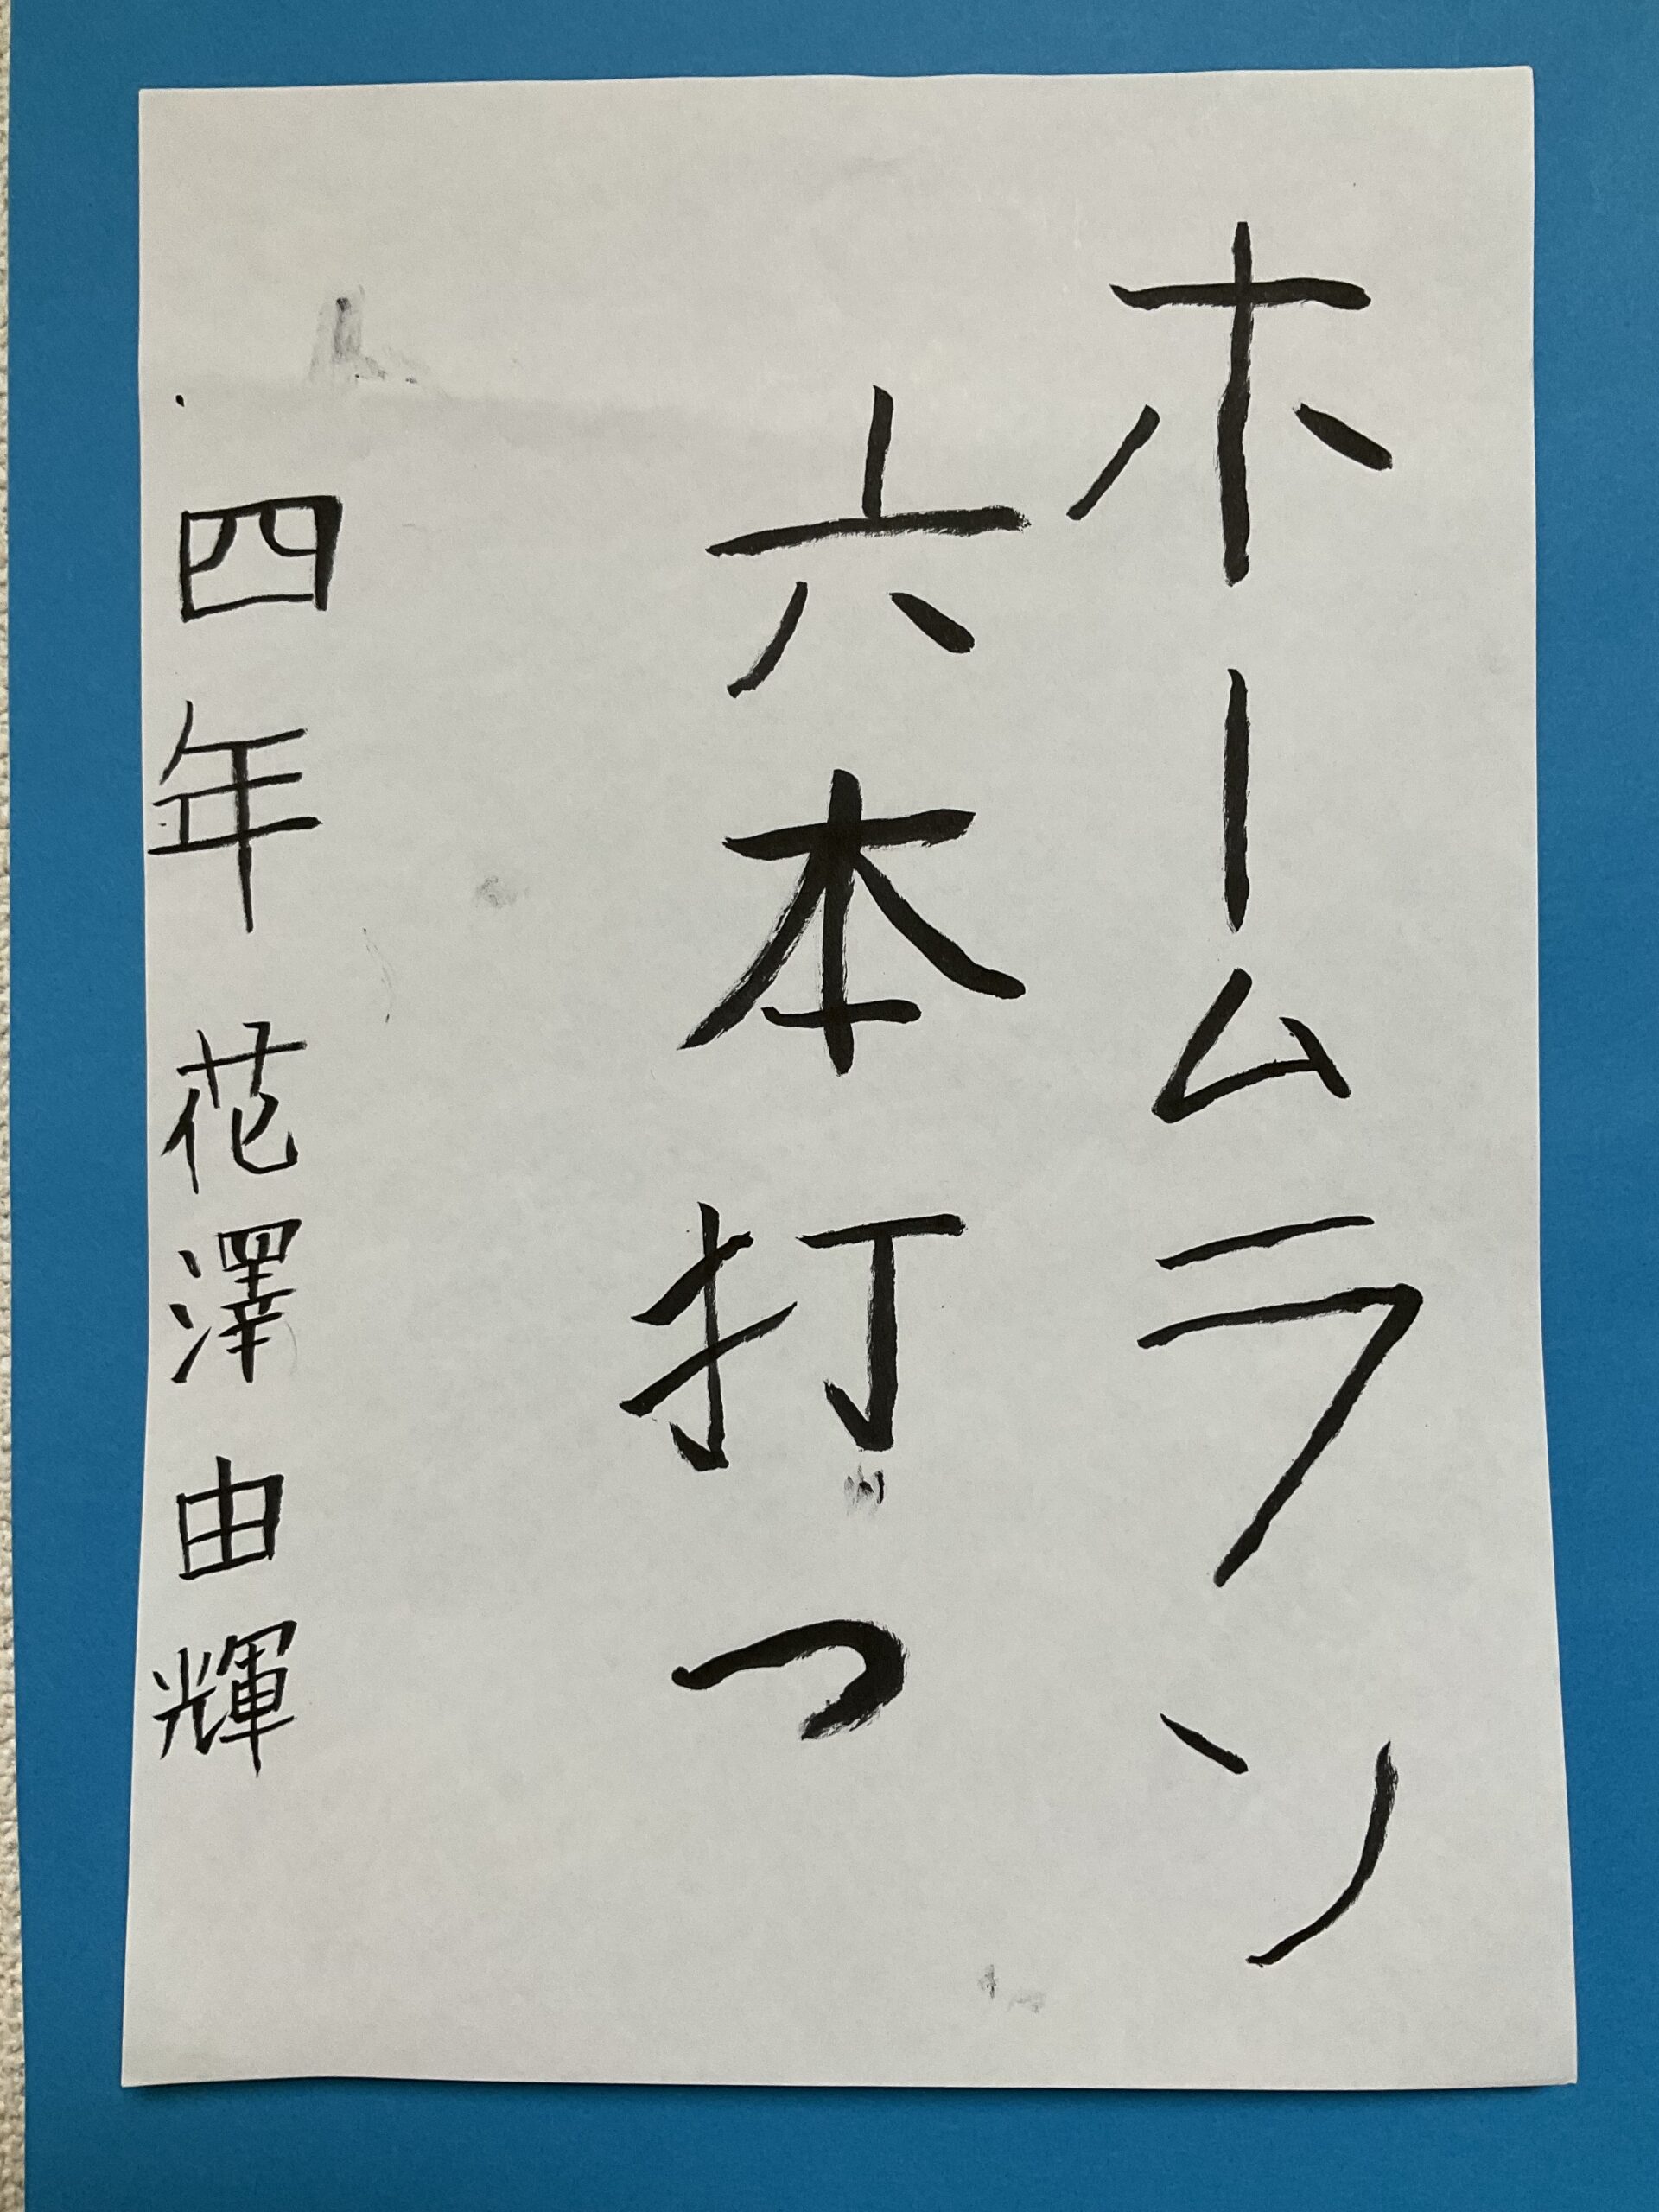 ホームラン
六本打つ
四年 花澤由輝